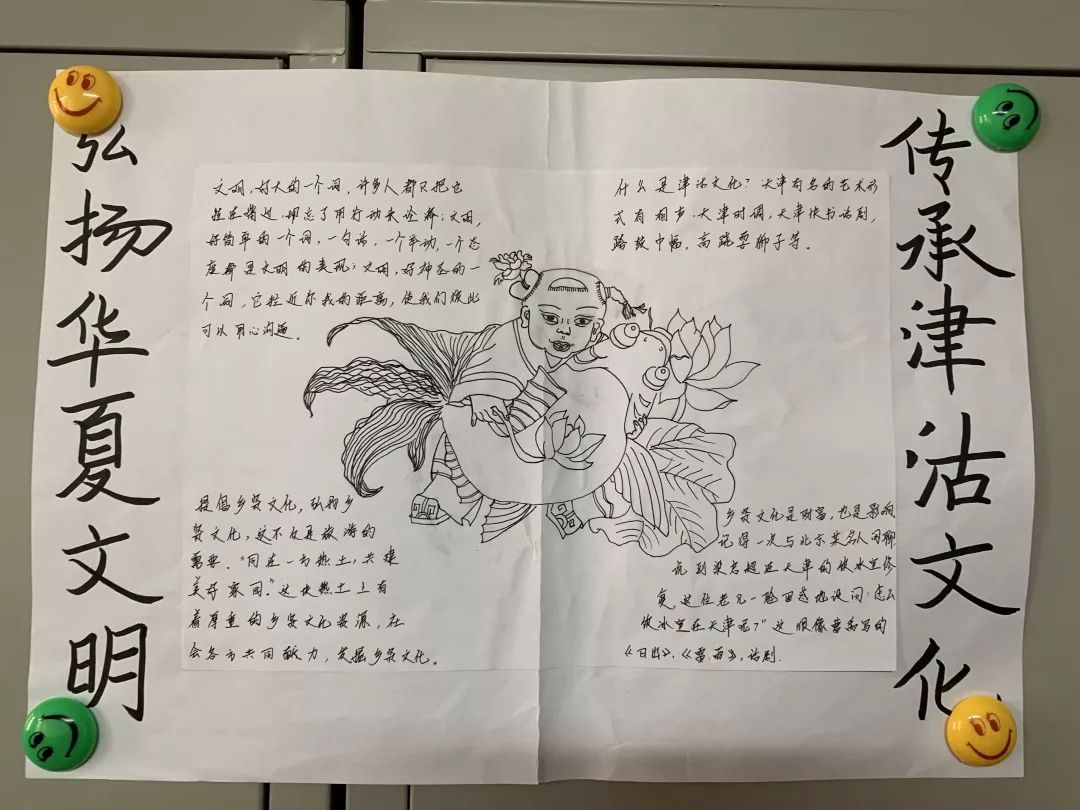 弘扬华夏文明
文明,好大的一个词,许多人都只把它
挂在嘴边,却忘了用行动来诠释;文明,
好简单的一个词,一句话,一个举动,一个态
度都是文明的表现;文明,好神圣的一
个词,它拉近你我的距离,使我们彼此
可以用心沟通。
什么是津沽文化?天津有名的艺术形
式有相声,天津时调,天津快书话剧,
踏鼓中幡,高跷耍狮子等。
提倡乡贤文化,弘扬乡
贤文化,这不仅是旅游的
需要。“同在一方热土,共建
美好家园。”这块热土上有
着厚重的乡贤文化资源,在
会各方共同献力,发掘乡贤文化。
乡贤文化是财富,也是影响
记得一次与北京某名人闲聊
说到梁启超在天津的饮冰室修
复这位老兄一脸困惑地设问:怎么
饮冰室在天津呢?”这很像曹禺写的
《日出》,《雷雨》,话剧.
传承津沽文化